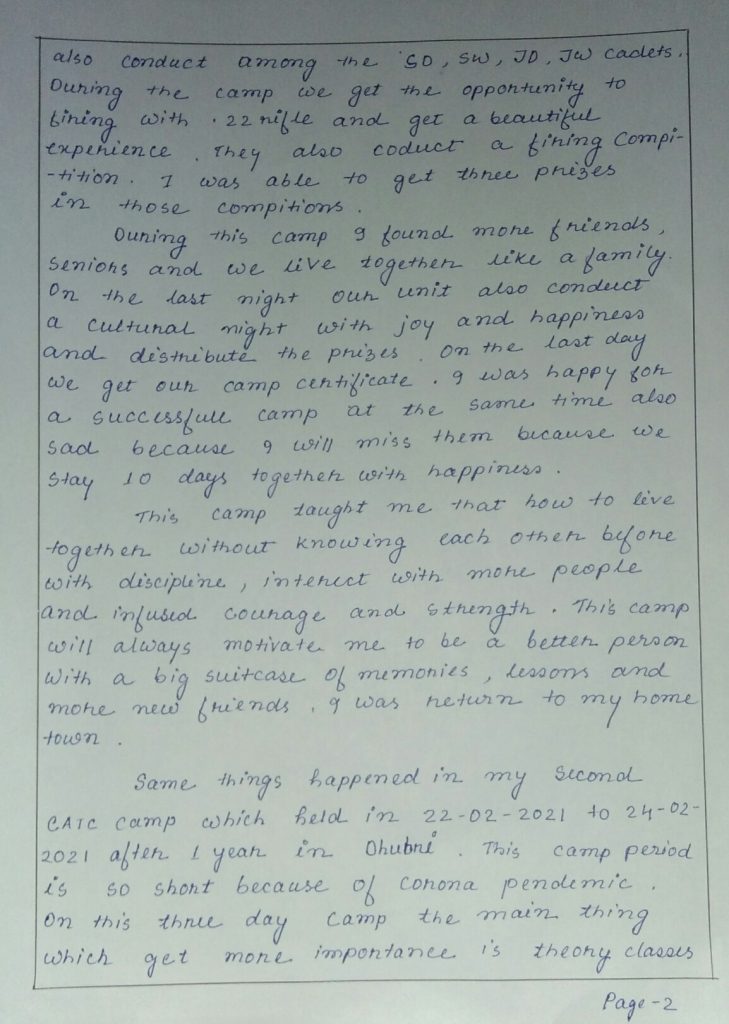 also conduct among the SD, SW, JD, JW cadets.
During the camp we get the opportunity to
firing with .22 rifle and get a beautiful
experience. They also coduct a firing compi-
-tition. I was able to get three prizes
in those compitions.
During this camp I found more friends,
seniors and we live together like a family.
On the last night our unit also conduct
a cultural night with joy and happiness
and distribute the prizes. On the last day
we get our camp certificate. I was happy for
a successfull camp at the same time also
sad because I will miss them because we
stay 10 days together with happiness.
This camp taught me that how to live
together without knowing each other before
with discipline, interect with more people
and infused courage and strength. This camp
will always motivate me to be a better person
with a big suitcase of memories, lessons and
more new friends. I was return to my home
town.
Same things happened in my second
CATC camp which held in 22-02-2021 to 24-02-
2021 after 1 year in Dhubri. This camp period
is so short because of corona pendemic.
On this three day camp the main thing
which get more importance is theory classes
Page-2